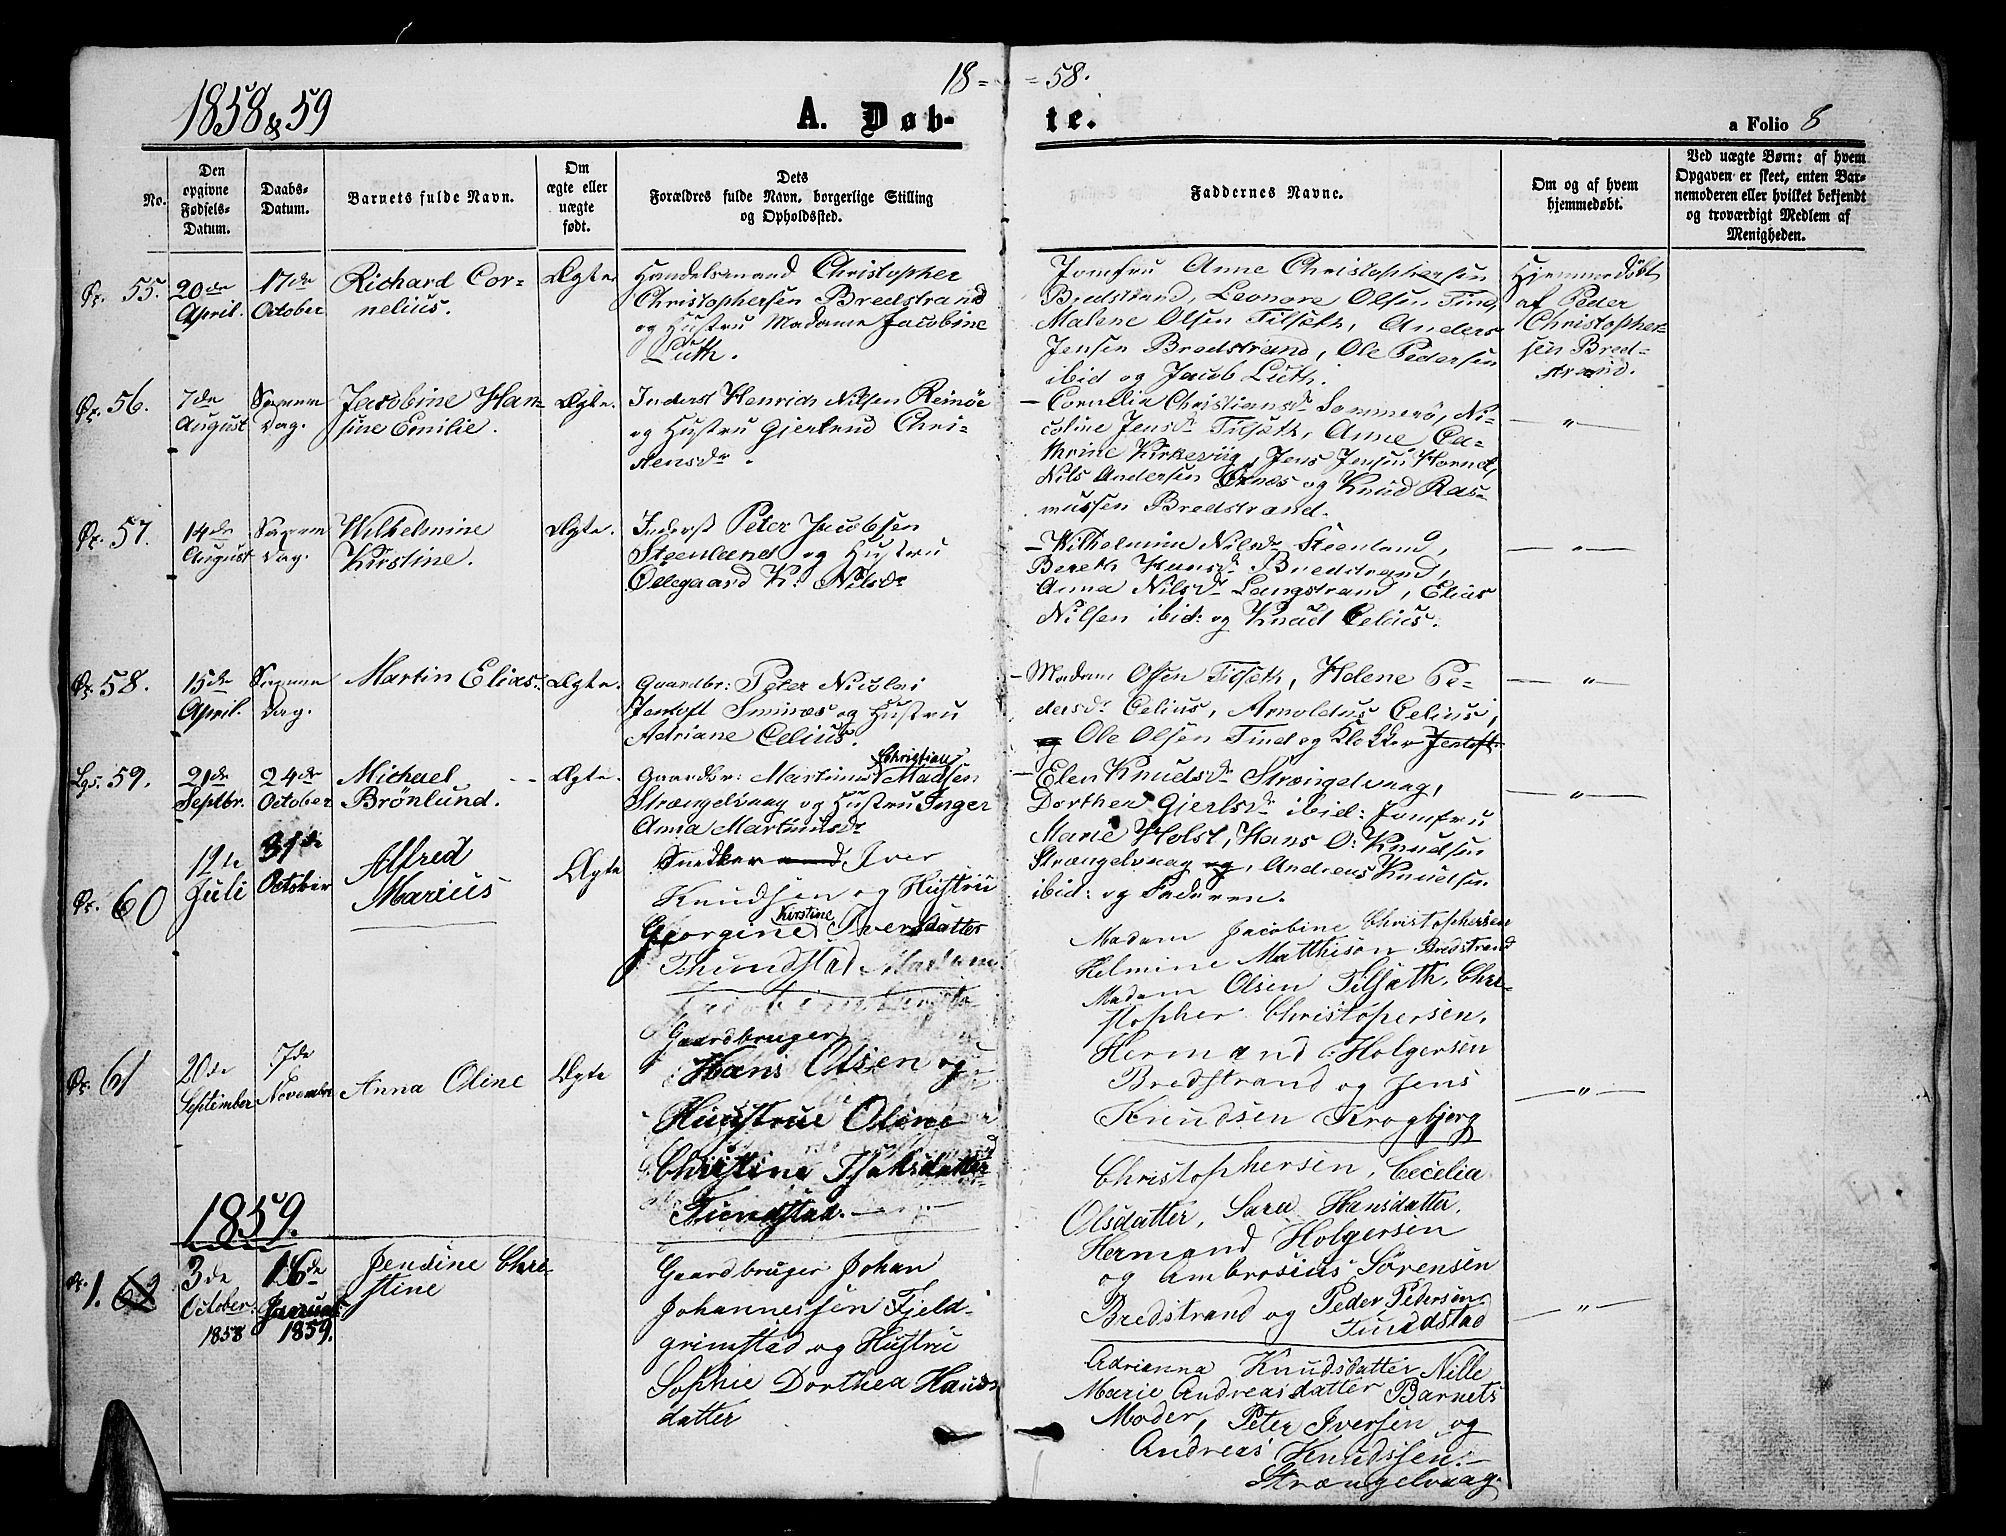 18 = = 58.
1858 & 59
A. Døb- te.
a Folio 8
No.
Den opgivne Fødsels-Datum.
Daabs-Datum.
Barnets fulde Navn.
Om ægte eller uægte født.
Dets Forældres fulde Navn, borgerlige Stilling og Opholdssted.
Faddernes Navne.
Om og af hvem hjemmedøbt.
Ved uægte Børn: af hvem Opgaven er skeet, enten Barnemoderen eller hvilket bekjendt og troværdigt Medlem af Menigheden.
Ør. 55.
20de April.
17de October
Richard Cor-
nelius.
Ægte.
Handelsmand Christopher
Christophersen Bredstrand
og Hustru Madame Jacobine
Lúth.
Jomfru Anne Christophersen
Bredstrand, Leonore Olsen Tind,
Malene Olsen Tilsæth, Anders
Jensen Bredstrand, Ole Pedersen
ibid og Jacob Lúth.
Hjemmedöbt
af Peder
Christopher-
sen Bred-
strand.
Ør. 56.
7de August
Samme Dag.
Jacobine Han-
sine Emilie.
Ægte.
Inderst Henrich Nilsen Reinöe
og Hustru Gjertrud Chri-
stensdr.
Cornelia Christiansdr Sommerö, Ni-
coline Jensdr Tilsæth, Anne Ca-
thrine Kirkevüg, Jens Jensen Hornet,
Nils Andersen Örnæs og Knud Ras-
mussen Bredstrand.
— " —
Ør. 57.
14de August
Samme Dag.
Wilhelmine
Kirstine.
Ægte.
Inderst Peter Jacobsen
Steenland og Hustru
Ollegaard K. Nilsdr
Wilhelmine Nilsdr Steenland,
Bereth Hansdr Bredstrand,
Anna Nilsdr Langstrand, Elias
Nilsen ibid: og Knud Celius.
— " —
Ør. 58.
15de April.
Samme Dag.
Martin Elias.
Ægte.
Gaardbr: Peter Nicolai
Jentoft Sminæs og Hustru
Adriane Celius.
Madam Olsen Tilsæth, Helene Pe-
dersdr Celius, Arnoldus Celius,
og Ole Olsen Tind og Klokker Jentoft.
— " —
Lgs. 59.
21de Septbr.
24de October
Michael
Brönlund.
Ægte.
Gaardbr: Martinus Christian Madsen
Strængelvaag og Hustru Inger
Anna Martinusdr
Elen Knudsdr Strængelvaag,
Dorthea Gjertsdr ibid: Jomfru
Marie Holst, Hans O: Knudsen
Strængelvaag og, Andreas Knudsen
ibid: og Faderen.
— " —
Ør. 60
12te Juli
31de October
Alfred
Marius
Ægte
Snedker Iver
Knudsen og Hustrü
Georgine Kirstine Iversdatter
Tundstad
Madam Jacobine Christophersen
Helmine Matthison Bredstrand
Madam Olsen Tilsæth, Chri-
stopher Christopersen,
Hermand Holgersen
Bredstrand og Jens
Knudsen Krogbjerg
Ør. 61
20de September
7de November
Anna Oline
Ægte
Gaardbruger
Hans Olsen og
Hustrue Oline
Christine Isaksdatter
Tundstad.
Christophersen, Cecelia
Olsdatter, Sara Hansdatter.
Hermand Holgersen
og Ambrosius Sørensen
Bredstrand og Peder Pedersen
Tundstad
— " —
1859.
Ør. 1. 62
3de October. 1858
16de Januar 1859.
Jendine Chri-
stine
Gaardbruger Johan
Johannessen Fjeld-
grimstad og Hustru
Sophie Dorthea Hans-
datter
Adrianna Knudsdatter Nille
Marie Andreasdatter Barnets
Moder, Peter Iversen og
Andreas Knudssen.
Strængelvaag.
— " —